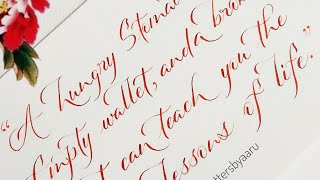 “A Hungry Stomac
Empty wallet, and a brok
can teach you the
Lessons of life.”
ttersbyaaru